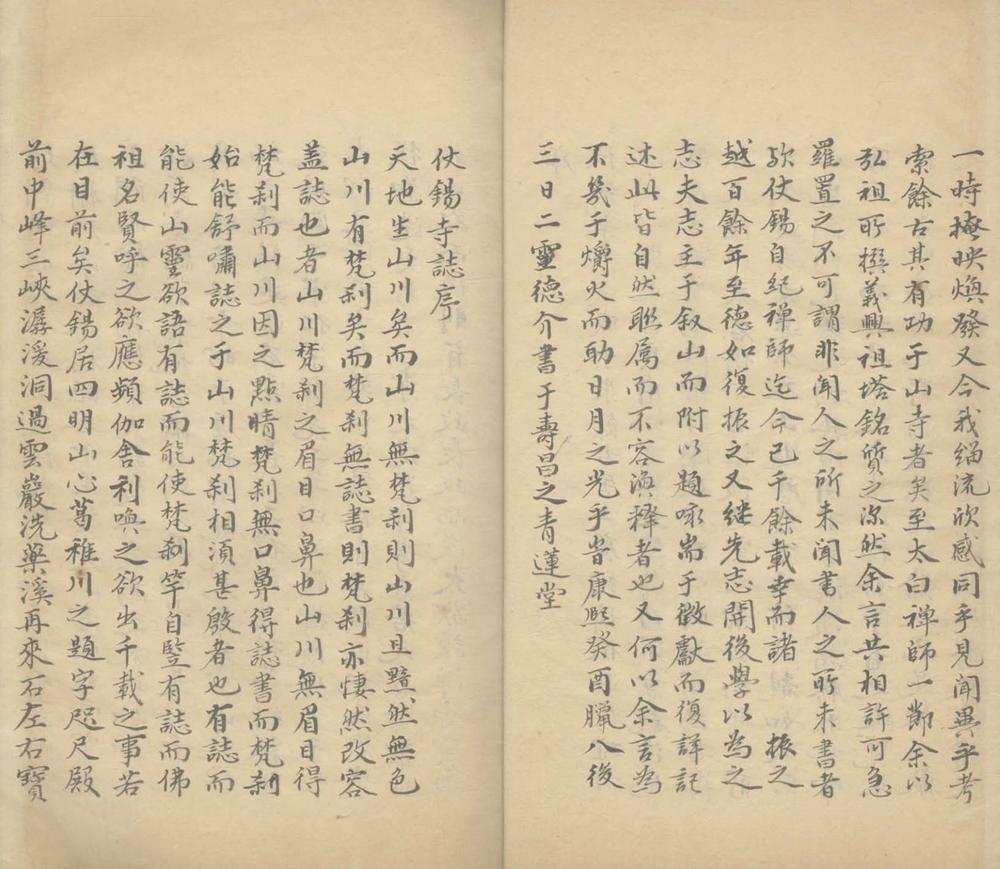 一時掩映煥發又令我緇流欣感同乎見聞異乎考
索餘古其有功于山寺者矣至太白禪師一鄣余以
弘祖所撰義興祖塔銘質之深然余言共相許可急
羅置之不可謂非聞人之所未聞書人之所未書者
歟仗錫自紀禪師迄今已千餘載幸而諸 振之
越百餘年至德如復振之又继先志開後學以為之
志夫志主于叙山而附以題咏耑于徵獻而復詳記
述此皆自然聮属而不容渙釋者也又何以余言為
不幾于爝火而助日月之光乎旹康熙癸酉臘八後
三日二靈德介書于壽昌之青蓮堂
仗錫寺誌序
天地生山川矣而山川無梵刹則山川且黯然無色
山川有梵刹矣而梵刹無誌書則梵刹亦悽然改容
盖誌也者山川梵刹之眉目口鼻也山川無眉目得
梵刹而山川因之點睛梵刹無口鼻得誌書而梵刹
始能舒嘯誌之于山川梵刹相湏甚殷者也有誌而
能使山靈欲語有誌而能使梵刹竿自豎有誌而佛
祖名賢呼之欲應頻伽舍利喚之欲出千載之事若
在目前矣仗錫居四明山心葛稚川之題字咫尺殿
前中峰三峽潺湲洞過雲巖洗藥溪再來石左右寶